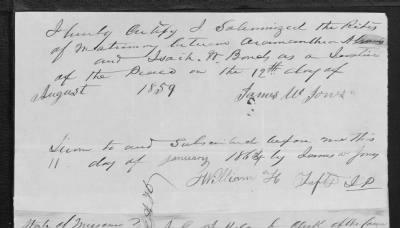 I hereby Certify I Solemnized the Rites
of Matrimony between Aramintha Adams
and Isaih W. Bonds as a Justice
of the Peace on the 12th day of
August 1859 James W Jones
Sworn to and Subscribed before me this
11 day of January 1868 by James W Jones
William H Tefts J.P
State of Missouri Clerk of the